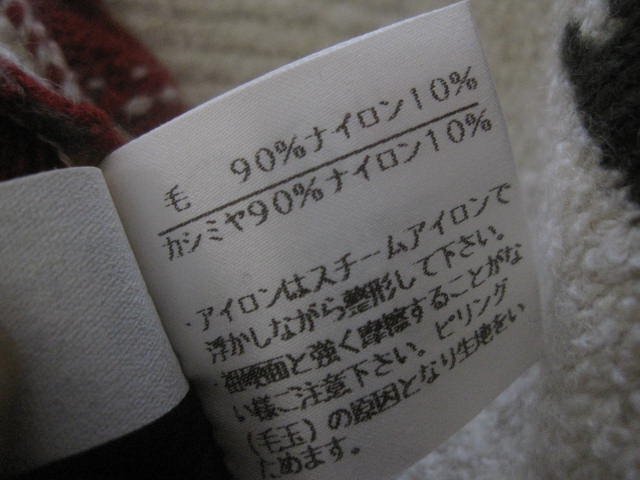 毛 90%ナイロン10%
カシミヤ90%ナイロン10%
・アイロンはスチームアイロンで
浮かしながら整形して下さい。
・粗硬面と強く摩擦することがな
い様ご注意下さい。ピリング
(毛玉)の原因となり生地をい
ためます。